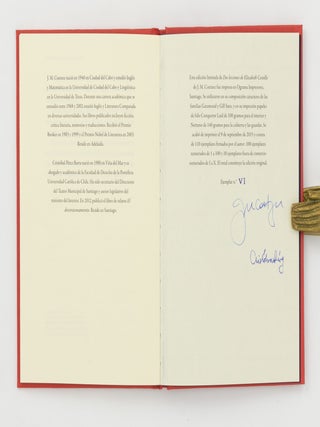 J. M. Coetzee nació en 1940 en Ciudad del Cabo y estudió Inglés
y Matemática en la Universidad de Ciudad del Cabo y Lingüística
en la Universidad de Texas. Durante una carrera académica que se
extendió entre 1968 y 2002, enseñó Inglés y Literatura Comparada
en diversas universidades. Sus libros publicados incluyen ficción,
crítica literaria, memorias y traducciones. Recibió el Premio
Booker en 1983 y 1999 y el Premio Nobel de Literatura en 2003.
Reside en Adelaida.
Cristóbal Pérez Barra nació en 1980 en Viña del Mar y es
abogado y académico de la Facultad de Derecho de la Pontificia
Universidad Católica de Chile. Ha sido secretario del Directorio
del Teatro Municipal de Santiago y asesor legislativo del
ministerio del Interior. En 2012 publicó el libro de relatos El
Reside en Santiago.
Esta edición limitada de Dos lecciones de Elizabeth Costello
de J. M. Coetzee fue impresa en Ograma Impresores,
Santiago. Se utilizaron en su composición caracteres de las
familias Garamond y Gill Sans, y en su impresión papeles
de 100 gramos para el interior y
de gramos para la cubierta y las guardas. Se
acabó de imprimir el 9 de septiembre de 2015 y consta
de 110 ejemplares firmados por el autor: 100 ejemplares
numerados de 1 a 100 y 10 ejemplares fuera de comercio
numerados de I a X. El total constituye la edición original.
Ejemplar n.º VI